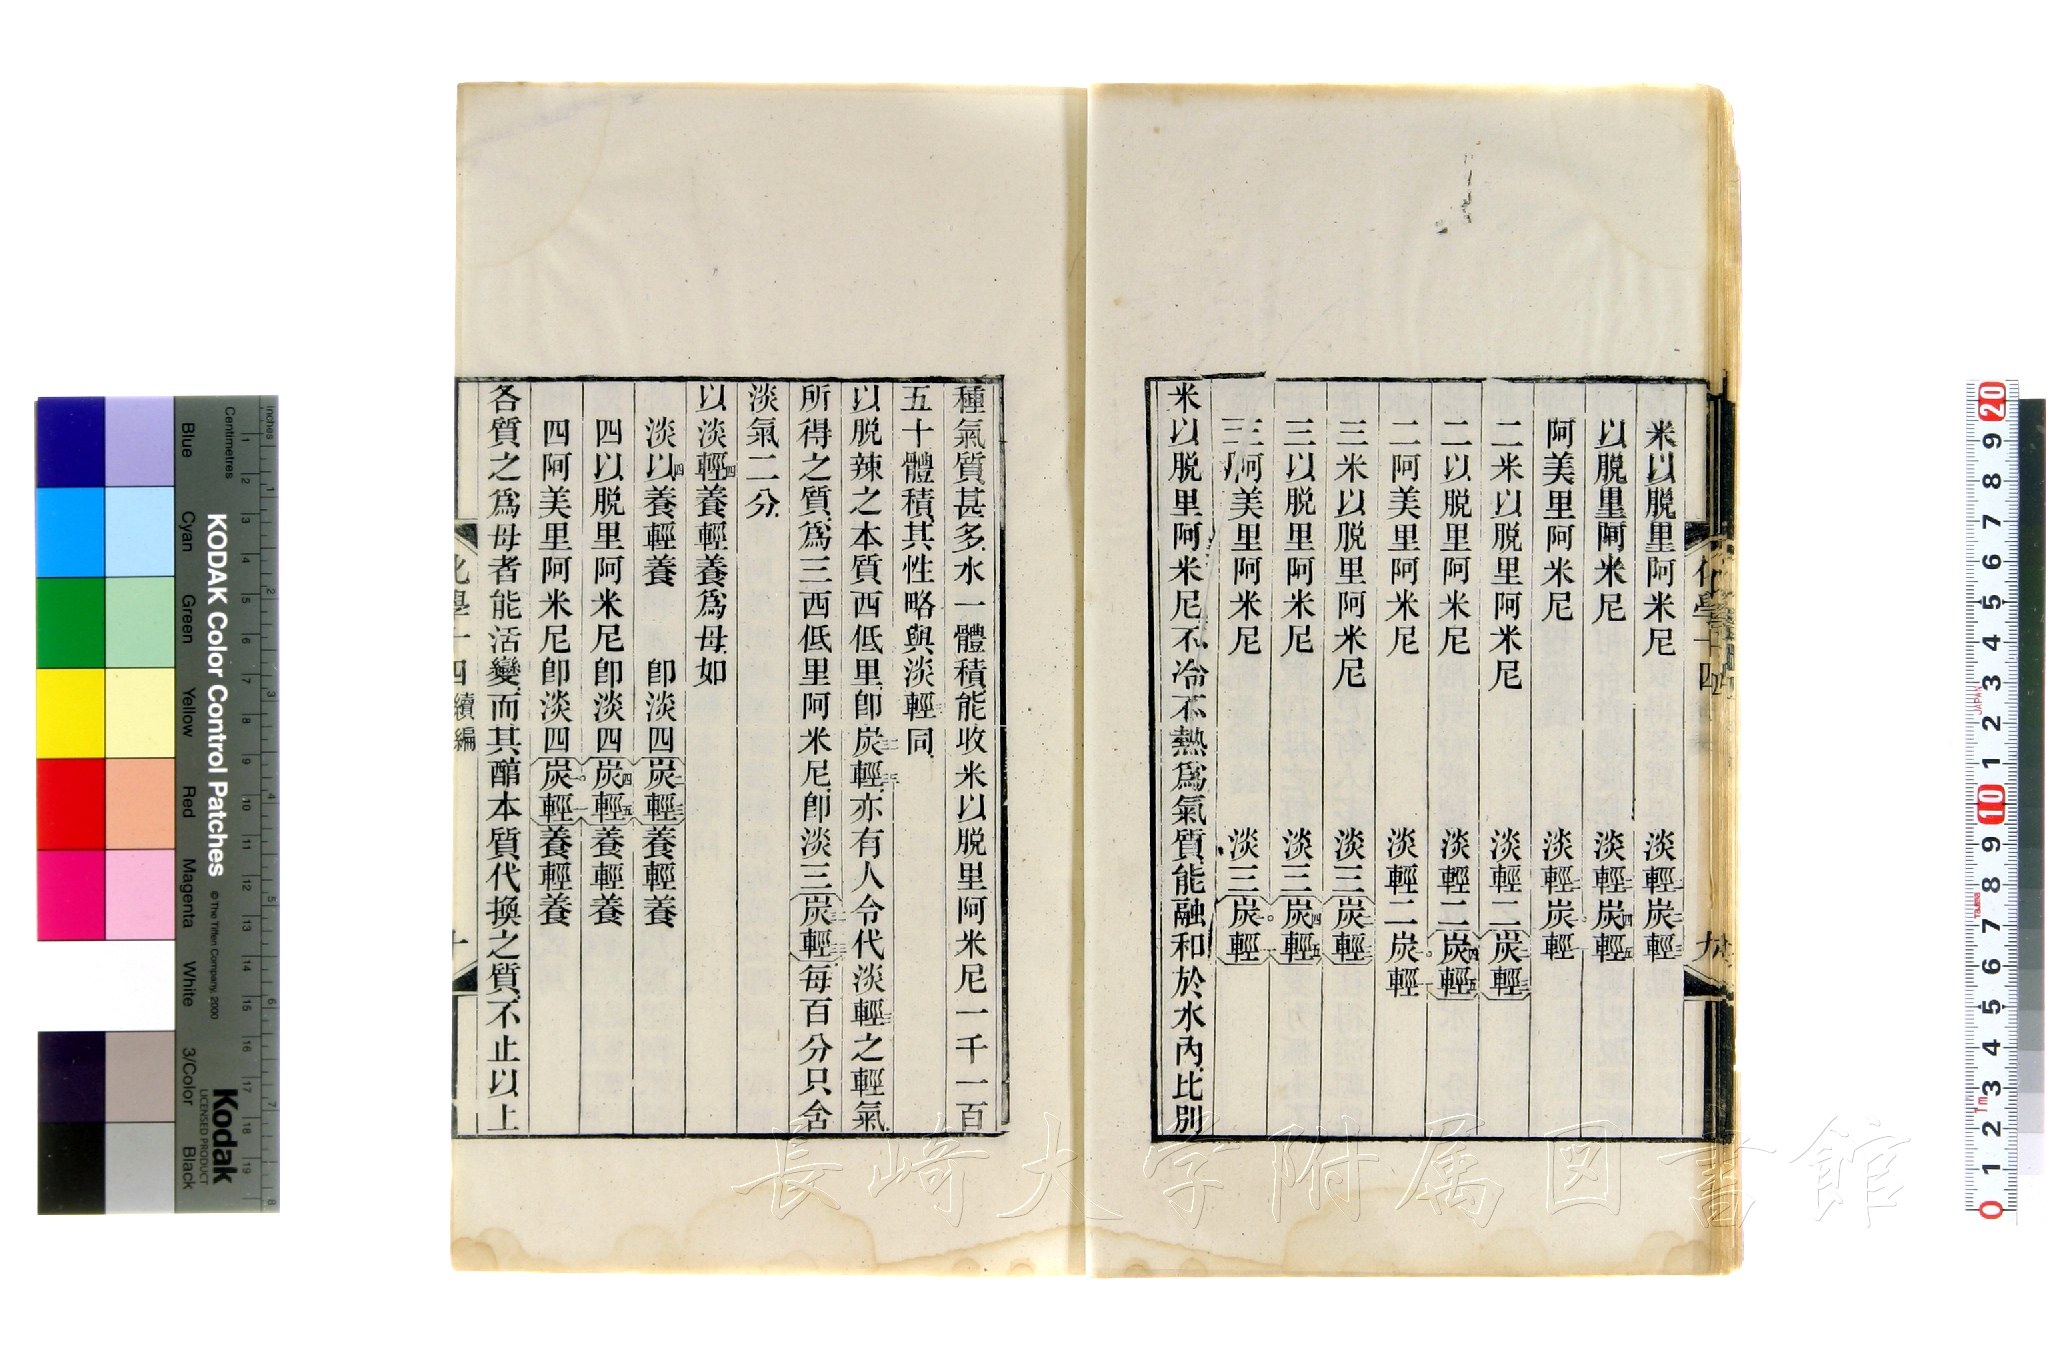 米以脱里阿米尼 淡輕二炭輕三
以脱里阿米尼 淡輕二炭四輕五
阿美里阿米尼 淡輕二炭輕
二米以脱里阿米尼 淡輕二炭輕三
二以脱里阿米尼 淡輕二炭四輕五
二阿美里阿米尼 淡輕二炭輕
三米以脱里阿米尼 淡三炭二輕三
三以脱里阿米尼 淡三炭四輕五
三阿美里阿米尼 淡三炭輕
米以脱里阿米尼不冷不熱爲氣質能融和於水內比別
化學十四
九
種氣質甚多水一體積能收米以脱里阿米尼一千一百
五十體積其性略與淡輕三同
以脱辣之本質西低里卽炭三輕三亦有人令代淡輕三之輕氣
所得之質爲三西低里阿米尼卽淡三炭輕每百分只含
淡氣二分
以淡輕四養輕養爲母如
淡以四養輕養 卽淡四炭二輕三養輕養
四以脱里阿米尼卽淡四炭四輕五養輕養
四阿美里阿米尼卽淡四炭輕養輕養
各質之爲母者能活變而其醕本質代換之質不止以上
化學十四續編
KODAK Color Control Patches
© The Tiffen Company, 2000
Kodak
LICENSED PRODUCT
Inches
Centimetres
Blue
Cyan
Green
Yellow
Red
Magenta
White
3/Color
Black
JAPAN
Tajima
1m
長崎大学附属図書館